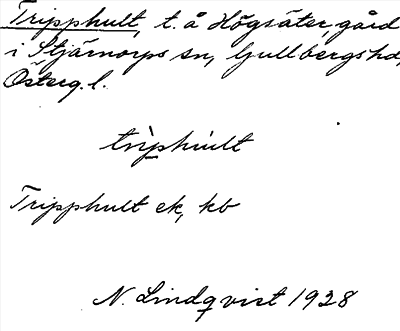 Tripphult, t. å Högsäter, gård
i Stjärnorps sn, Gullbergs hd,
Österg. l.
trìp̲hùlt
Tripphult ek, kb
N. Lindqvist 1928